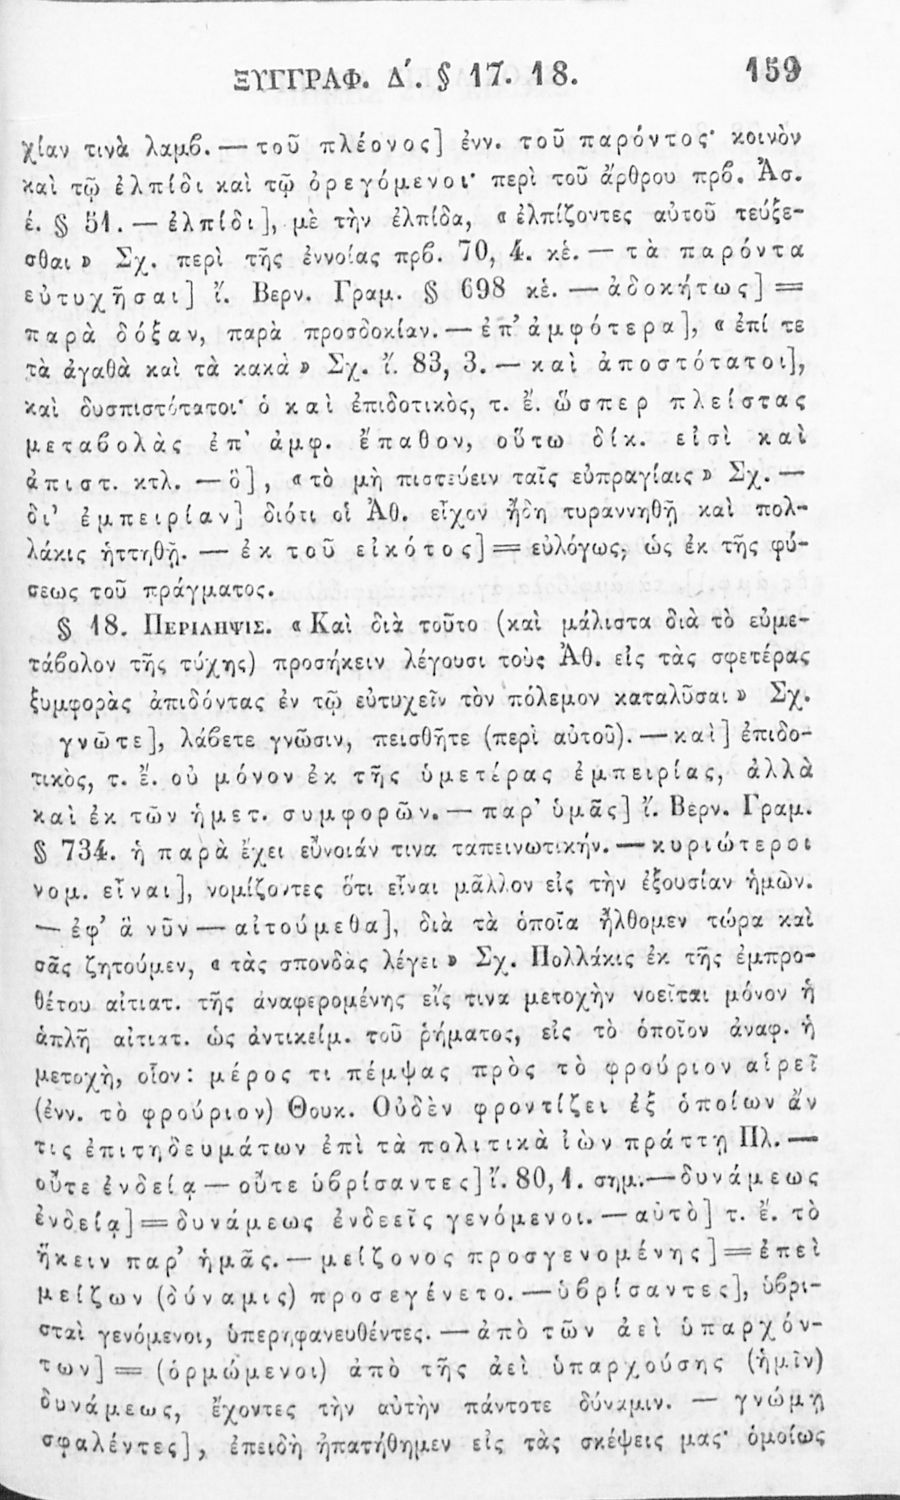 ΞΥΓΓΡΑΦ. Δ΄. § 17. 18. 159
χίαν τινὰ λαμβ. — τοῦ πλέονος] ἐνν. τοῦ παρόντος· κοινὸν
καὶ τῷ ἐλπίδι καὶ τῷ ὀρεγόμενοι· περὶ τοῦ ἄρθρου πρβ. Ἀσ.
έ. § 51. — ἐλπίδι], μὲ τὴν ἐλπίδα, « ἐλπίζοντες αὐτοῦ τεύξε-
σθαι » Σχ. περὶ τῆς ἐννοίας πρβ. 70, 4. κἑ. — τὰ παρόντα
εὐτυχῆσαι] ἴ. Βερν. Γραμ. § 698 κἑ. — ἀδοκήτως] =
παρὰ δόξαν, παρὰ προσδοκίαν. — ἐπ’ ἀμφότερα], « ἐπί τε
τὰ ἀγαθὰ καὶ τὰ κακὰ » Σχ. ἴ. 83, 3. — καὶ ἀποστότατοι],
καὶ δυσπιστότατοι· ὁ καὶ ἐπιδοτικὸς, τ. ἔ. ὥσπερ πλείστας
μεταβολὰς ἐπ’ ἀμφ. ἔπαθον, οὕτω δίκ. εἰσὶ καὶ
ἀπιστ. κτλ. — ὃ], « τὸ μὴ πιστεύειν ταῖς εὐπραγίαις » Σχ. —
δι’ ἐμπειρίαν] διότι οἱ Ἀθ. εἶχον ἤδη τυραννηθῆ καὶ πολ-
λάκις ἡττηθῆ. — ἐκ τοῦ εἰκότος] = εὐλόγως, ὡς ἐκ τῆς φύ-
σεως τοῦ πράγματος.
§ 18. ΠΕΡΙΛΗΨΙΣ. « Καὶ διὰ τοῦτο (καὶ μάλιστα διὰ τὸ εὐμε-
τάβολον τῆς τύχης) προσήκειν λέγουσι τοὺς Ἀθ. εἰς τὰς σφετέρας
ξυμφορὰς ἀπιδόντας ἐν τῷ εὐτυχεῖν τὸν πόλεμον καταλῦσαι » Σχ.
γνῶτε], λάβετε γνῶσιν, πεισθῆτε (περὶ αὐτοῦ). — καὶ] ἐπιδο-
τικὸς, τ. ἔ. οὐ μόνον ἐκ τῆς ὑμετέρας ἐμπειρίας, ἀλλὰ
καὶ ἐκ τῶν ἡμετ. συμφορῶν. — παρ’ ὑμᾶς] ἴ. Βερν. Γραμ.
§ 734. ἡ παρὰ ἔχει εὔνοιάν τινα ταπεινωτικήν. — κυριώτεροι
νομ. εἶναι], νομίζοντες ὅτι εἶναι μᾶλλον εἰς τὴν ἐξουσίαν ἡμῶν.
— ἐφ’ ἃ νῦν — αἰτούμεθα], διὰ τὰ ὁποῖα ἤλθομεν τώρα καὶ
σᾶς ζητούμεν, « τὰς σπονδὰς λέγει » Σχ. Πολλάκις ἐκ τῆς ἐμπρο-
θέτου αἰτιατ. τῆς ἀναφερομένης εἴς τινα μετοχὴν νοεῖται μόνον ἡ
ἁπλῆ αἰτιατ. ὡς ἀντικείμ. τοῦ ῥήματος, εἰς τὸ ὁποῖον ἀναφ. ἡ
μετοχὴ, οἷον: μέρος τι πέμψας πρὸς τὸ φρούριον αἱρεῖ
(ἐνν. τὸ φρούριον) Θουκ. Οὐδὲν φροντίζει ἐξ ὁποίων ἄν
τις ἐπιτηδευμάτων ἐπὶ τὰ πολιτικὰ ἰὼν πράττῃ Πλ. —
οὔτε ἐνδείᾳ — οὔτε ὑβρίσαντες] ἴ. 80, 1. σημ. — δυνάμεως
ἐνδείᾳ] = δυνάμεως ἐνδεεῖς γενόμενοι. — αὐτὸ] τ. ἔ. τὸ
ἥκειν παρ’ ἡμᾶς. — μείζονος προσγενομένης] = ἐπεὶ
μείζων (δύναμις) προσεγένετο. — ὑβρίσαντες], ὑβρι-
σταὶ γενόμενοι, ὑπερηφανευθέντες. — ἀπὸ τῶν ἀεὶ ὑπαρχόν-
των] = (ὁρμώμενοι) ἀπὸ τῆς ἀεὶ ὑπαρχούσης (ἡμῖν)
δυνάμεως, ἔχοντες τὴν αὐτὴν πάντοτε δύναμιν. — γνώμῃ
σφαλέντες], ἐπειδὴ ἠπατήθημεν εἰς τὰς σκέψεις μας· ὁμοίως